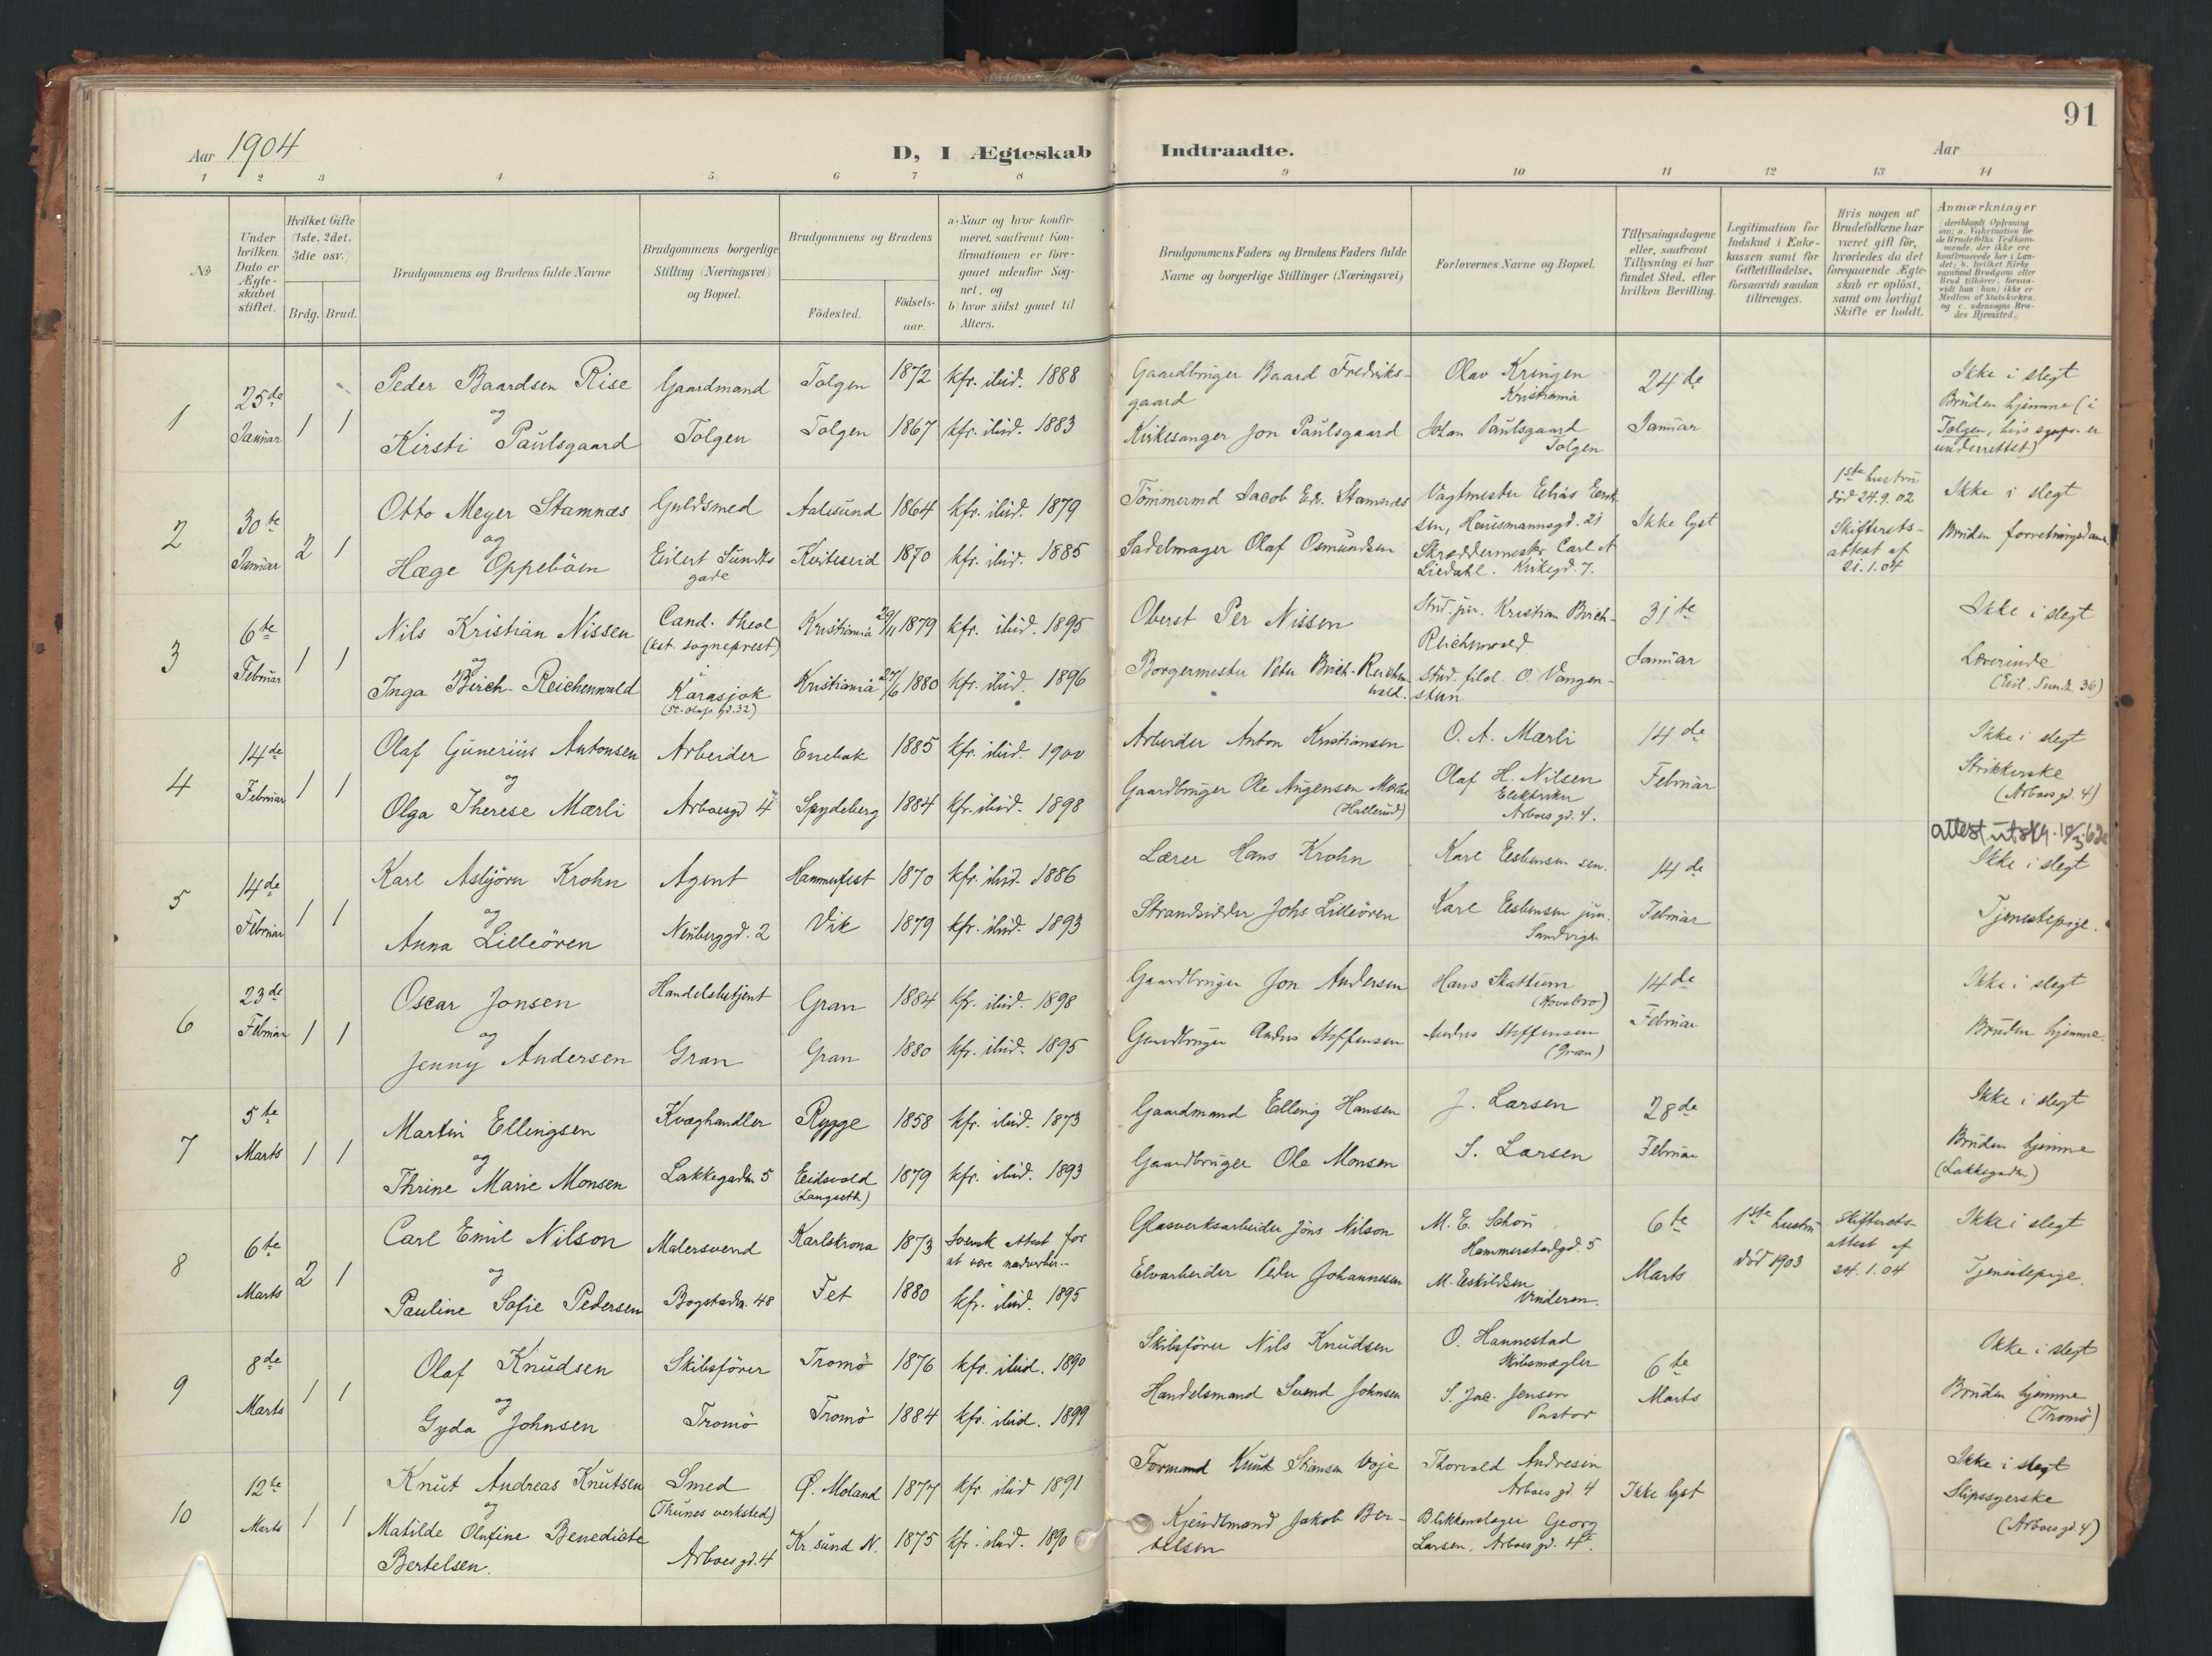 91
Aar 1904
D, I Ægteskab Indtraadte.
Aar
1 2 3 4 5 6 7 8 9 10 11 12 13 14
No
Under hvilken Dato er Ægteskabet stiftet.
Hvilket Gifte (1ste, 2det, 3die osv.)
Brdg. Brud.
Brudgommens og Brudens fulde Navne
Brudgommens borgerlige Stilling (Næringsvei) og Bopæl.
Brudgommens og Brudens
Födested.
Födsels-aar.
a) Naar og hvor konfir-
meret, saafremt Kon-
firmationen er fore-
gaaet udenfor Sog-
net, og
b) hvor sidst gaaet til
Alters.
Brudgommens Faders og Brudens Faders fulde
Navne og borgerlige Stillinger (Næringsvei)
Forlovernes Navne og Bopæl.
Tillysningsdagene
eller, saafremt
Tillysning ei har
fundet Sted, efter
hvilken Bevilling.
Legitimation for
Indskud i Enke-
kassen samt for
Giftetilladelse,
forsaavidt saadan
tiltrænges.
Hvis nogen af
Brudefolkene har
været gift för,
hvorledes da det
foregaaende Ægte-
skab er oplöst,
samt om lovligt
Skifte er holdt.
Anmærkninger
(deriblandt Oplysning
om: a. Vakcination for
de Brudefolks Vedkom-
mende, der ikke ere
konfirmerede her i Lan-
det; b. hvilket Kirke-
samfund Brudgom eller
Brud tilhører, forsaa-
vidt han (hun) ikke er
Medlem af Statskirken,
og c. udensogns Bru-
des Hjemsted.)
1
25de Januar
1 1
Peder Baardsen Rise
og
Kirsti Paulsgaard
Gaardmand
Tolgen
Tolgen 1872 kfr. ibid. 1888
Tolgen 1867 kfr. ibid. 1883
Gaardbruger Baard Fredriks-
gaard
Kirkesanger Jon Paulsgaard
Olav Kringen
Kristiania
Johan Paulsgaard
Tolgen
24de Januar
Ikke i slegt
Bruden hjemme (i
Tolgen, hvis sogepr. er
underrettet)
2
30te Januar
2 1
Otto Meyer Stamnæs
og
Hæge Oppeböen
Guldsmed
Eilert Sundts
gade
Aalesund 1864 kfr. ibid. 1879
Kviteseid 1870 kfr. ibid. 1885
Tömmermd Jacob Edv. Stamnæs
Sadelmager Olaf Osmundsen
Vagtmester Elias
sen, Hausmannsgd. 21
Skræddermester Carl A
Liedahl. Kirkegd. 7.
Ikke lyst
1ste hustru
död 24.9.02
Skifterets-
attest af
21.1.04
Ikke i slegt
Bruden forretningsdame
3
6te Februar
1 1
Nils Kristian Nissen
og
Inga Birch-Reichenwald
Cand. theol
(kst. sogneprest)
i
Karasjok
(St. Olafs gd. 32)
Kristiania 29/11 1879 kfr. ibid. 1895
Kristiania 27/6 1880 kfr. ibid. 1896
Oberst Per Nissen
Borgermester Peter Birch-Reichen
wald.
Stud. jur. Kristian Birch-
Reichenwald
Stud. filol. O. Vangen-
sten
31te Januar
Ikke i slegt
Lærerinde
(Eil. Sundt. 36)
4
14de Februar
1 1
Olaf Gunerius Antonsen
og
Olga Therese Mærli
Arbeider
Arboesgd 4
Enebak 1885 kfr. ibid. 1900
Spydeberg 1884 kfr. ibid. 1898
Arbeider Anton Kristiansen
Gaardbruger Ole Augensen Mærli
(Hallerud)
O. A. Mærli
Olaf H. Nilsen
Elektriker
Arboes gd. 4.
14de Februar
Ikke i slegt
Strikkerske
(Arboes gd. 4)
5
14de Februar
1 1
Karl Asbjörn Krohn
og
Anna Lilleören
Agent
Neuberggd. 2
Hammerfest 1870 kfr. ibid. 1886
Vik 1879 kfr. ibid. 1893
Lærer Hans Krohn
Strandsidder Johs Lilleören
Karl Esbensen sen.
Karl Esbensen jun.
Sandvigen
14de Februar
attest utskr. 10/3-62
Ikke i slegt
Tjenestepige.
6
23de Februar
1 1
Oscar Jonsen
og
Jenny Andersen
Handelsbetjent
Gran
Gran 1884 kfr. ibid. 1898
Gran 1880 kfr. ibid. 1895
Gaardbruger Jon Andersen
Gaardbruger Anders Steffensen
Hans Skattum
Anders Steffensen
(Gran)
14de Februar
Ikke i slegt
Bruden hjemme.
7
5te Marts
1 1
Martin Ellingsen
og
Thrine Marie Monsen
Kvæghandler
Lakkegaden 5
Rygge 1858 kfr. ibid. 1873
Eidsvold
(Langseth)
1879 kfr. ibid. 1893
Gaardmand Elling Hansen
Gaardbruger Ole Monsen
J. Larsen
S. Larsen
28de Februar
Ikke i slegt
Bruden hjemme
(Lakkegaden)
8
6te Marts
2 1
Carl Emil Nilson
og
Pauline Sofie Pedersen
Malersvend
Bogstadv. 48
Karlskrona 1873 Svensk attest for
at være nadverber.
Fet 1880 kfr. ibid. 1895
Glasverksarbeider Jöns Nilson
Elvarbeider Peder Johannesen
M. E. Schou
Hammerstadgd. 5
M. Eskildsen
Vinderen.
6te Marts
1ste hustru
död 1903
Skifterets-
attest af
24.1.04
Ikke i slegt
Tjenestepige.
9
8de Marts
1 1
Olaf Knudsen
og
Gyda Johnsen
Skibsförer
Tromö
Tromö 1876 kfr. ibid. 1890
Tromö 1884 kfr. ibid. 1899
Skibsförer Nils Knudsen
Handelsmand Svend Johnsen
O. Hannestad
Skibsmægler
S. Jac. Jensen
Pastor
6te Marts
Ikke i slegt
Bruden hjemme
(Tromö)
10
12te Marts
1 1
Knut Andreas Knutsen
og
Matilde Olufine Benedicte
Bertelsen.
Smed
(Thunes verksted)
Arboesgd. 4
Ø. Moland 1877 kfr. ibid 1891
Kr.sund N. 1875 kfr. ibid. 1890
Formand Knut Voje
Kjendtmand Jakob Ber-
telsen
Thorvald Andresen
Arboes gd. 4
Blikkenslager Georg
Larsen, Arboes gd. 4.
Ikke lyst
Ikke i slegt
Slipssyerske
(Arboes gd. 4)